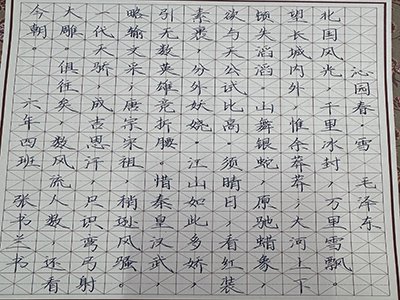 沁园春·雪 毛泽东
北国风光，千里冰封，万里雪飘。
望长城内外，惟余莽莽，大河上下，
顿失滔滔。山舞银蛇，原驰蜡象，
欲与天公试比高。须晴日，看红装
素裹，分外妖娆。江山如此多娇，
引无数英雄竞折腰。惜秦皇汉武，
略输文采，唐宗宋祖，稍逊风骚。
一代天骄，成吉思汗，只识弯弓射
大雕。俱往矣，数风流人数，还看
今朝。 六年四班 张书兰书